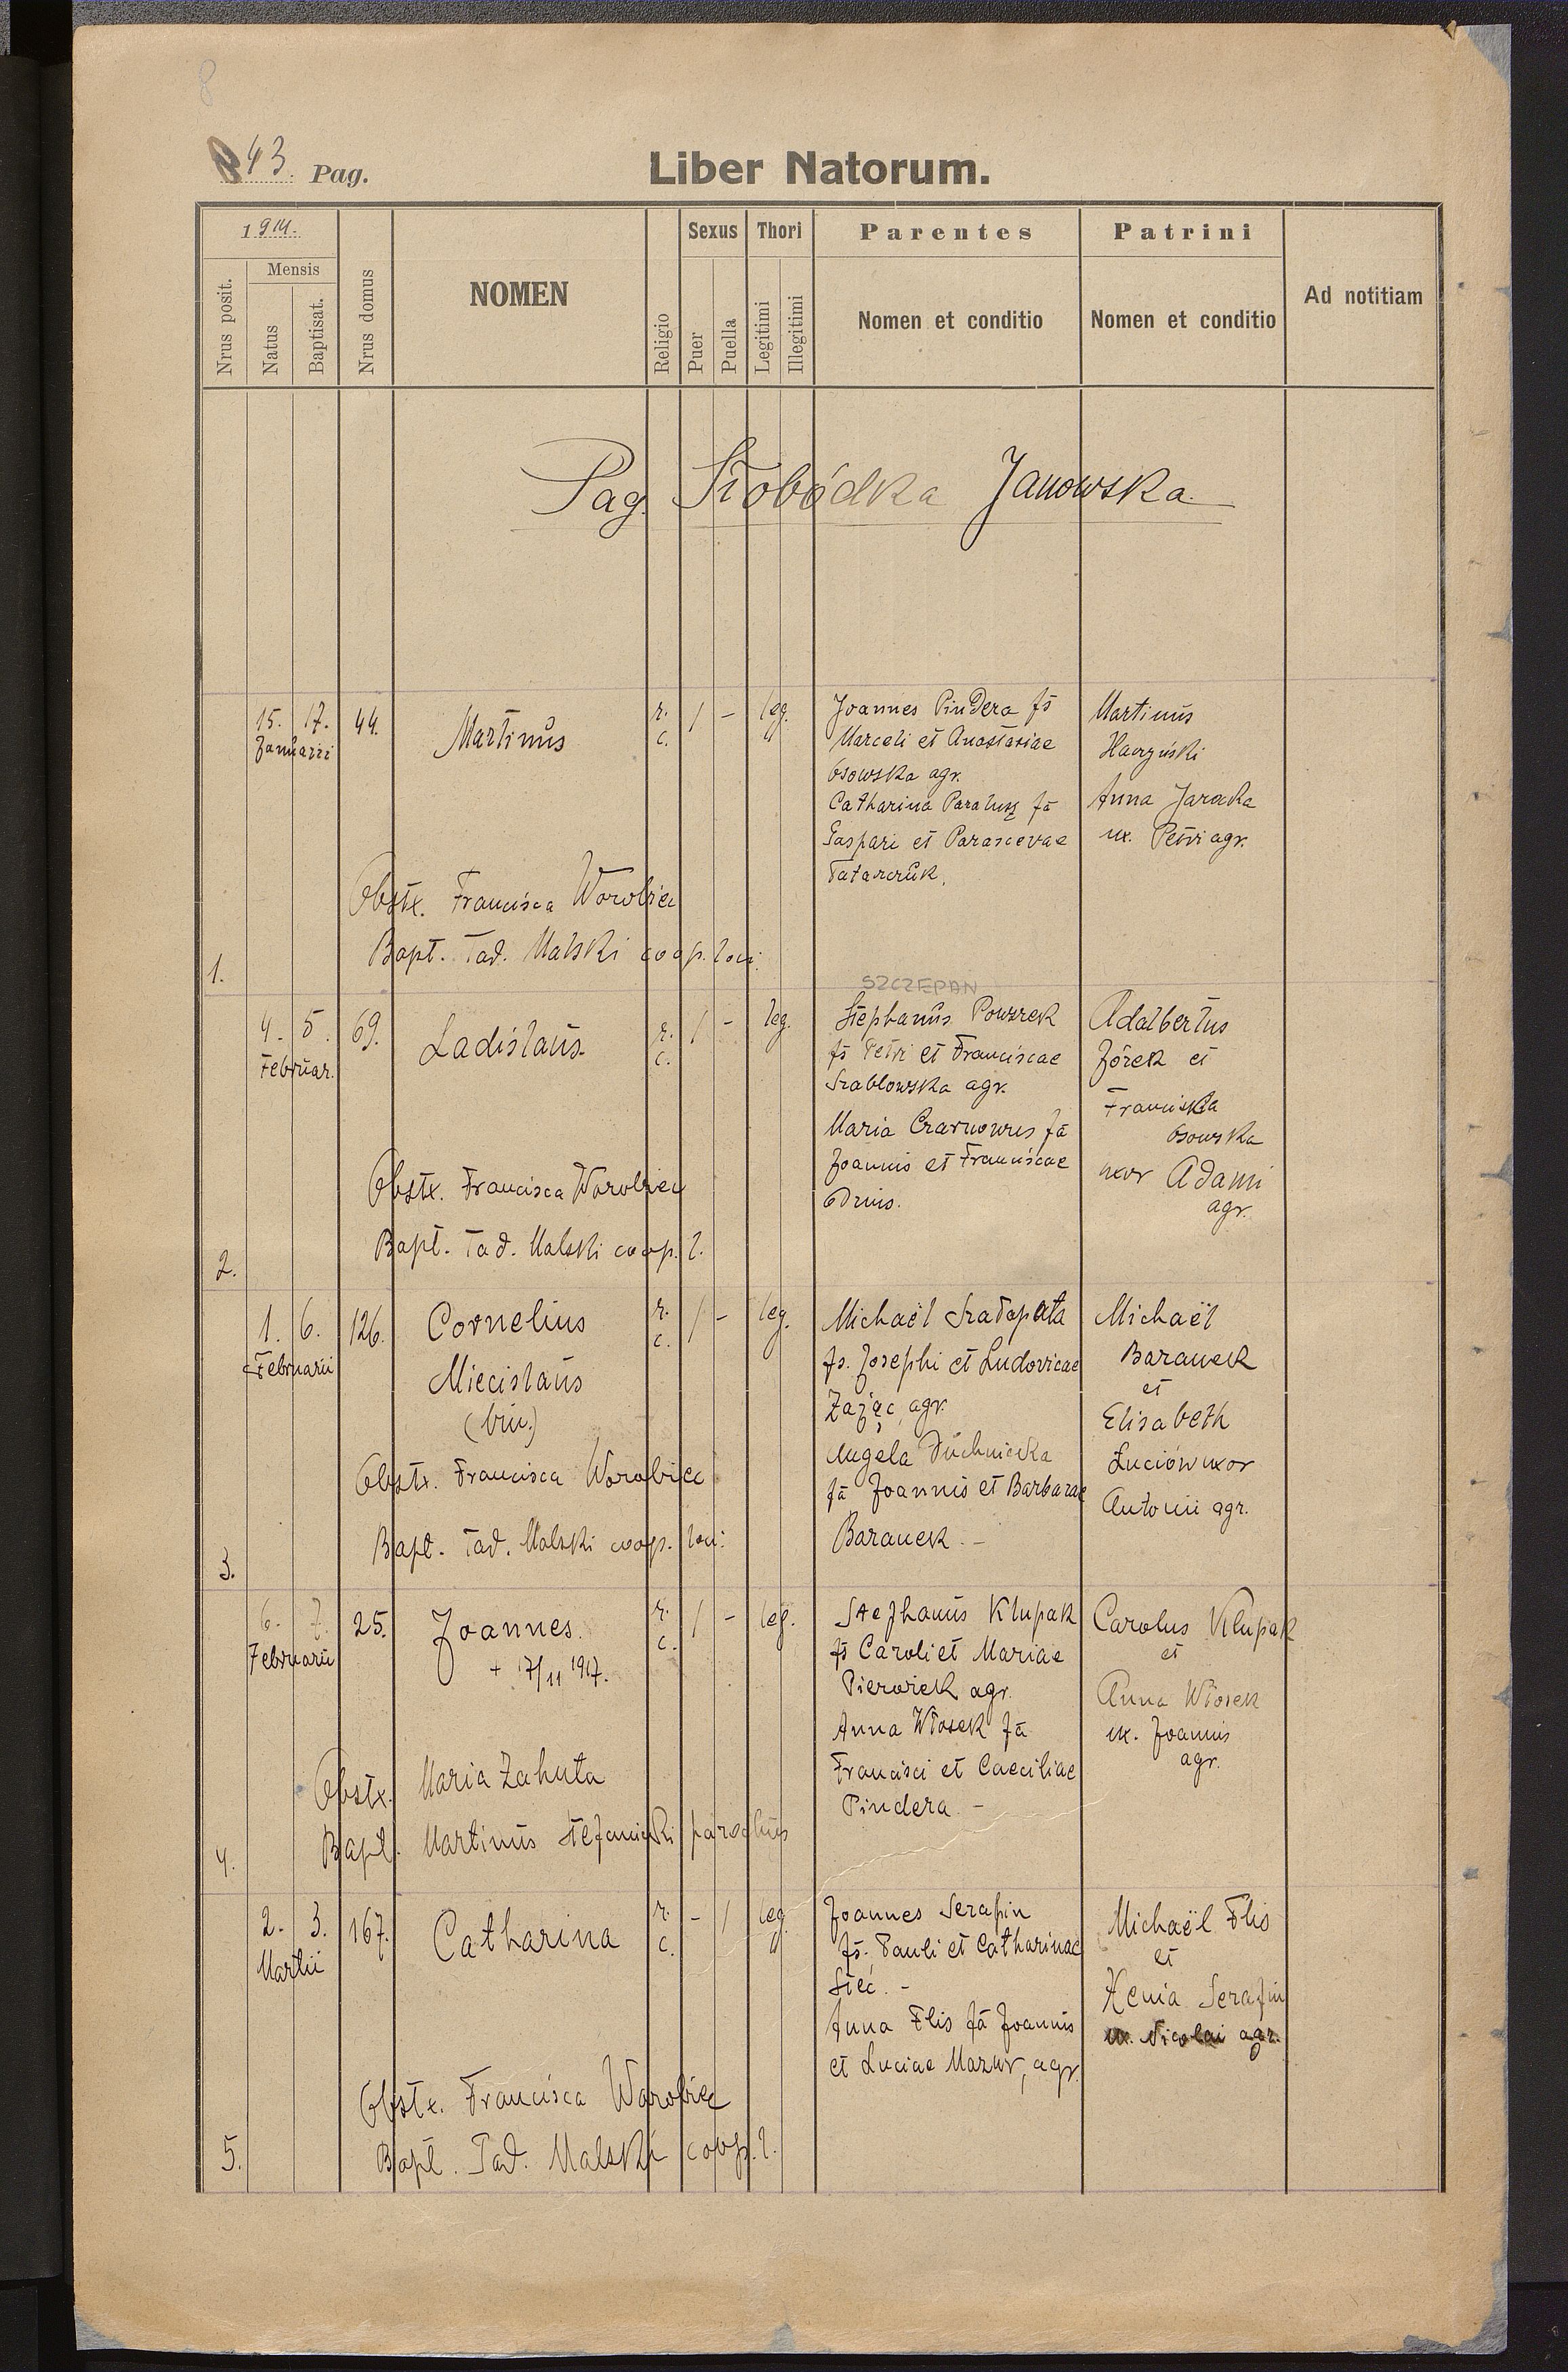 8
43. Pag.
Liber Natorum.
1914.
Nrus posit.
Mensis
Natus
Baptisat.
Nrus domus
NOMEN
Religio
Sexus
Puer
Puella
Thori
Legitimi
Illegitimi
Parentes
Nomen et conditio
Patrini
Nomen et conditio
Ad notitiam
Pag. Słobódka Janowska
1.
15. 17.
Januarii
44.
Martinus
r. c.
/ –
leg.
Joannes Pindera fs
Marceli et Anastasiae
Osowska agr.
Catharina Paralusz fa
Gaspari et Parascevae
Tatarczuk.
Martinus
Anna Jaracka
ux. Petri agr.
Obstx. Francisca Worobiec
Bapt. Tad. Malski coop. loci.
2.
4. 5.
Februar.
69.
Ladislaus.
r. c.
/ –
leg.
SZCZEPAN
Stephanus Powszek
fs Petri et Franciscae
Szablowska agr.
Maria Czarnowus fa
Joannis et Franciscae
Adalbertus
Żórek et
Franciska
Osowska
uxor Adami
agr.
Obstx. Francisca Worobiec
Bapt. Tad. Malski coop. l.
3.
1. 6.
Februarii
126.
Cornelius
Miecislaus
(bin.)
r. c.
/ –
leg.
Michaël Szadapata
fs. Josephi et Ludovicae
Zając, agr.
Angela Duchnicka
fa Joannis et Barbarae
Baranek. –
Michaël
Baranek
et
Elisabeth
Luciów uxor
Antonii agr.
Obstx. Francisca Worobiec
Bapt. Tad. Malski coop. loci.
4.
6. 7.
Februarii
25.
Joannes.
+ 17/11 1917.
r. c.
/ –
leg.
Stephanus Klupak
fs Caroli et Mariae
Pierożek agr.
Anna Włosek fa
Francisci et Caeciliae
Pindera. –
Carolus Klupak
et
Anna Włosek
ux. Joannis
agr.
Obstx. Maria Zahuta
Bapt. Martinus Stefanicki parochus
5.
2. 3.
Martii
167.
Catharina
r. c.
– /
leg.
Joannes Serafin
fs. Pauli et Catharinae
Sieć. –
Anna Flis fa Joannis
et Luciae Mazur, agr.
Michaël Flis
et
Xenia Serafin
ux. Nicolai agr.
Obstx. Francisca Worobiec
Bapt. Tad. Malski coop. l.